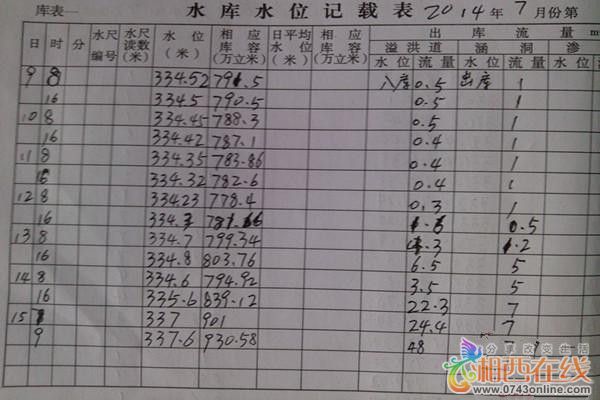 库表一 水库水位记载表 2014年7月份第
日 时 分 水尺编号 水尺读数(米) 水位(米) 相应库容(万立米) 日平均水位(米) 相应库容(万立米) 出库流量 m
溢洪道 涵洞 渗
水位 流量 水位 流量 水位
9 8 334.52 791.5 入库 0.5 出库 1
16 334.5 790.5 0.5 1
10 8 334.45 788.3 0.5 1
16 334.42 787.1 0.4 1
11 8 334.35 783.86 0.4 1
16 334.32 782.6 0.4 1
12 8 33423 778.4 0.3 1
16 334. 0.5
13 8 334.7 799.34 .3 .2
16 334.8 803.76 6.5 5
14 8 334.6 794.92 3.5 5
16 335.6 839.12 22.3 7
15 337 901 24.4 7
9 337.6 930.58 48 7
分享改变生活
湘西在线
www.0743online.com